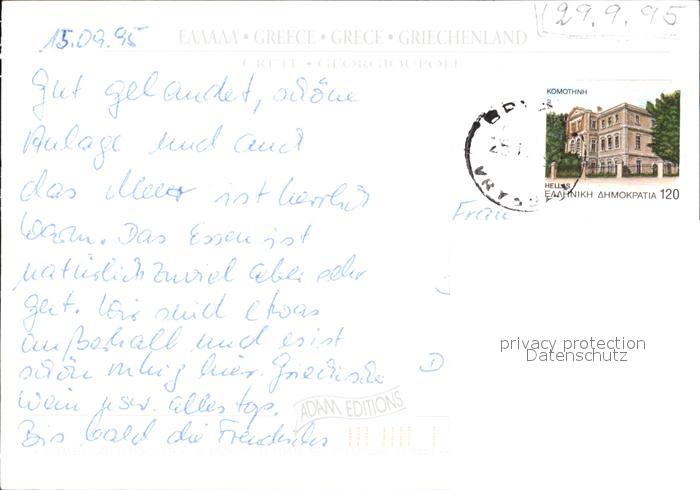 29.9.95
15.09.95
ΕΛΛΑΔΑ • GREECE • GRECE • GRIECHENLAND
CRETE - GEORGIOUPOLI
Gut gelandet, schöne
Anlage und auch
das Meer ist herrlich
warm. Das Essen ist
natürlich zuviel aber sehr
gut. Wir sind etwas
außerhalb und es ist
schön ruhig hier. Griechische
Wein usw. alles top.
Bis bald die
ADAM EDITIONS
ΚΟΜΟΤΗΝΗ
HELLAS
ΕΛΛΗΝΙΚΗ ΔΗΜΟΚΡΑΤΙΑ 120
Frau
D
privacy protection
Datenschutz